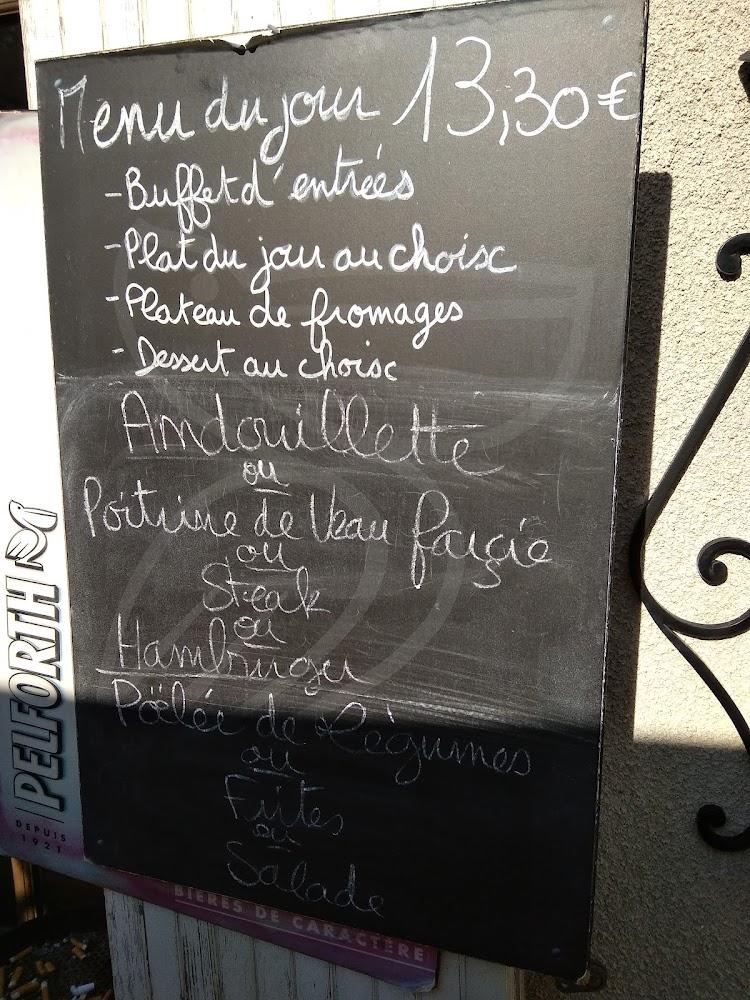 Menu du jour 13,30€
- Buffet d'entrées
- Plat du jour au choix
- Plateau de fromages
- Dessert au choix
Andouillette
ou
Poitrine de Veau farçie
ou
Steak
ou
Hambruger
Pöelée de Légumes
ou
Frites
ou
Salade
PELFORTH
DEPUIS
1921
BIÈRES DE CARACTÈRE